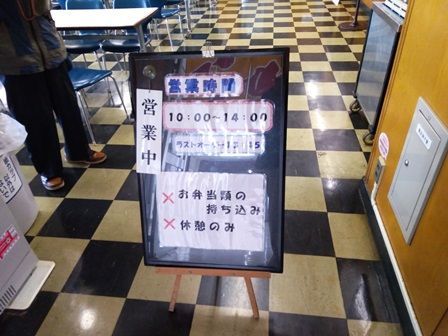 営業時間
営業中
10:00～14:00
ラストオーダー13:45
✕お弁当類の
持ち込み
✕休憩のみ